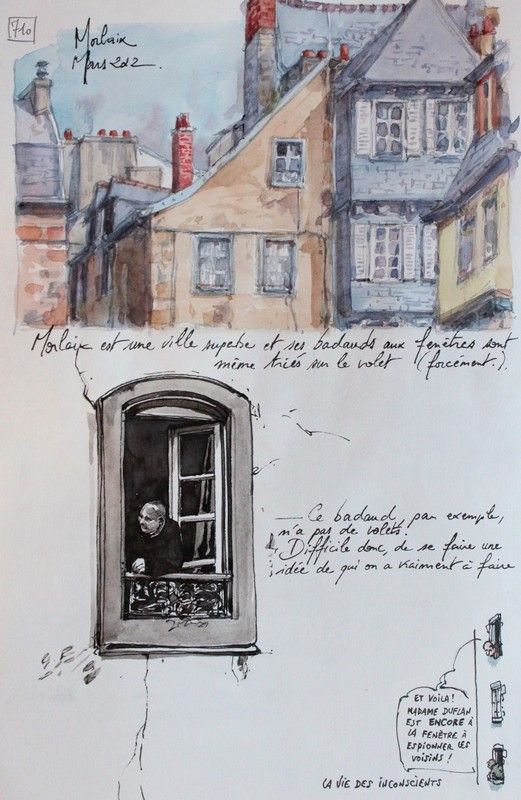 710
Morlaix
Mars 2012.
Morlaix est une ville superbe et ses badauds aux fenêtres sont
même triés sur le volet (forcément.).
— Ce badaud, par exemple,
n'a pas de volets.
Difficile donc, de se faire une
idée de qui on a vraiment à faire
ET VOILÀ!
MADAME DUFLAN
EST ENCORE À
LA FENÊTRE À
ESPIONNER LES
VOISINS!
LA VIE DES INCONSCIENTS